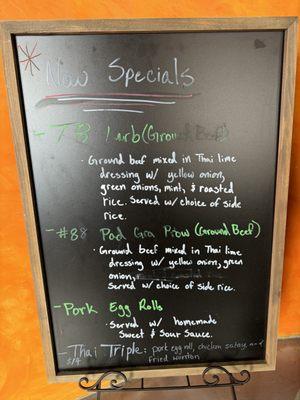 New Specials
- T3 Larb (Ground Beef)
· Ground beef mixed in Thai lime
dressing w/ yellow onion,
green onions, mint, & roasted
rice. Served w/ choice of side
rice.
- #88 Pad Gra Prow (Ground Beef)
· Ground beef mixed in Thai lime
dressing w/ yellow onion, green
onion,
Served w/ choice of side rice.
- Pork Egg Rolls
· Served w/ homemade
Sweet & Sour Sauce.
- Thai Triple: pork egg roll, chicken satay, and
$14 fried wonton